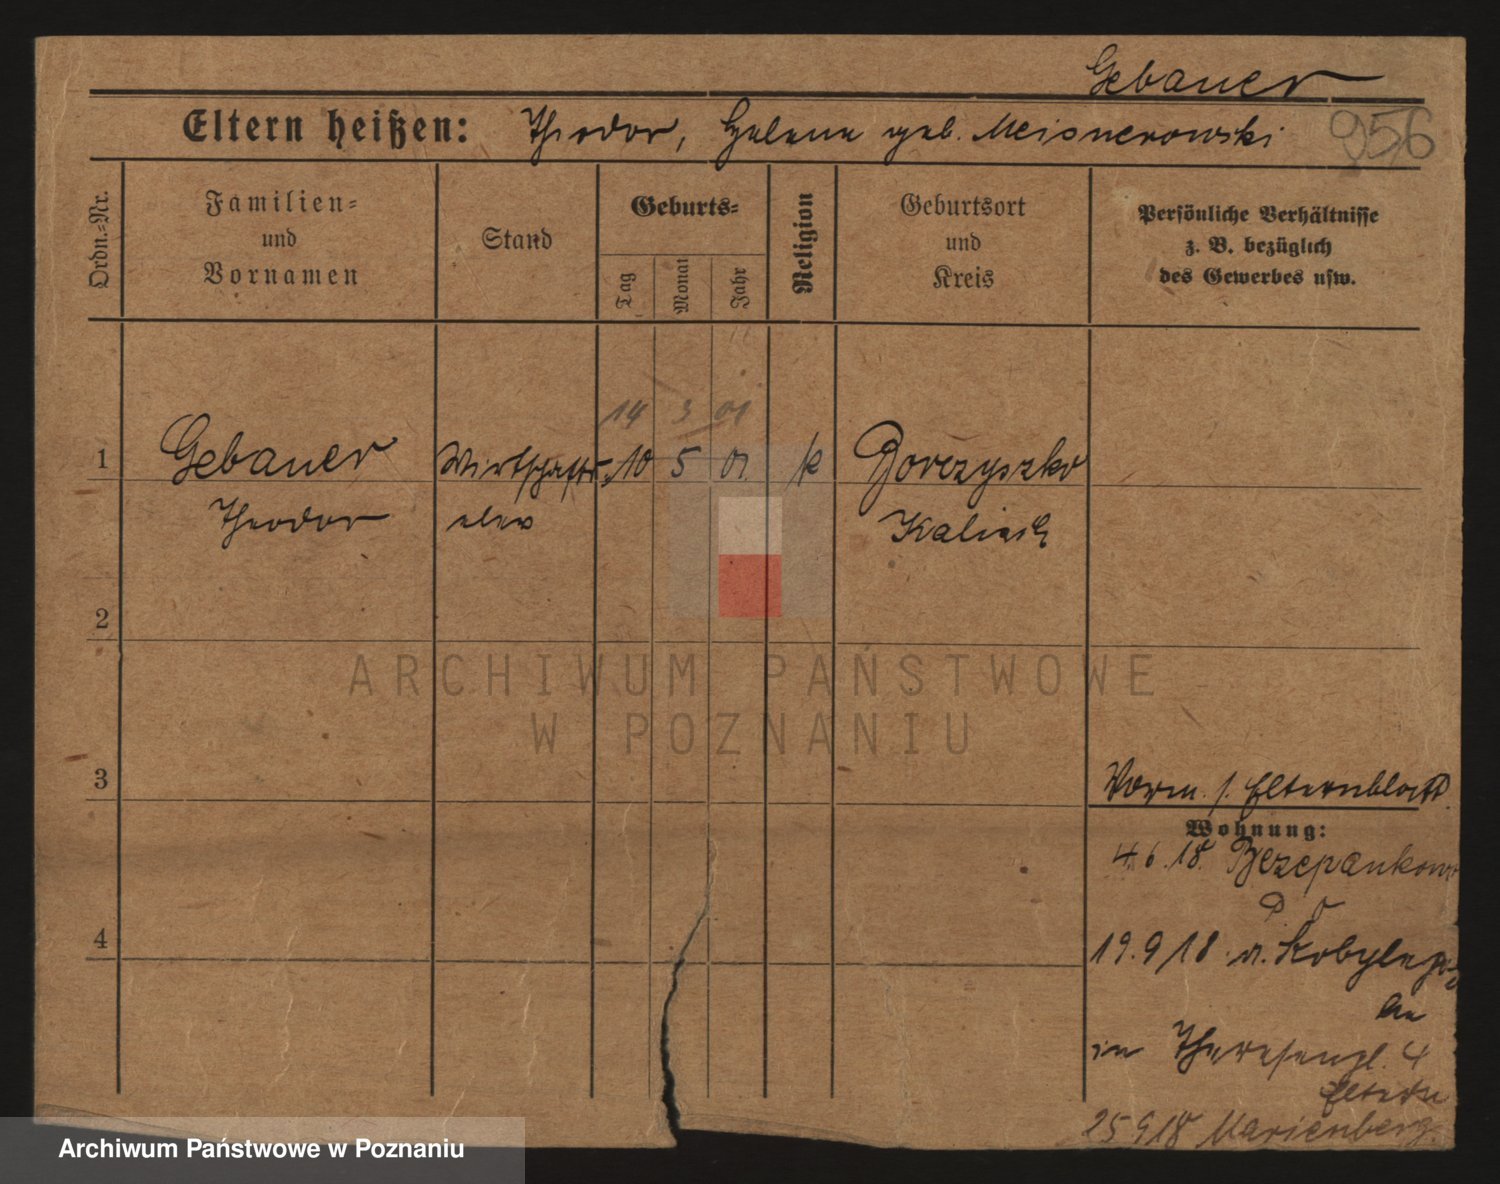 Gebauer
Eltern heißen: Theodor, Helene geb. Meisnerowski 956
Ordn.-Nr.
Familien-
und
Vornamen
Stand
Geburts-
Tag
Monat
Jahr
Religion
Geburtsort
und
Kreis
Persönliche Verhältnisse
z. B. bezüglich
des Gewerbes usw.
14 3 01
1 Gebauer Wirtschafts 10 5 01. k
Theodor elev Kalisch
2
ARCHIWUM PAŃSTWOWE
W POZNANIU
3
Vorm. s. Elternblatt.
Wohnung:
4.6.18.
4
19.9 18. n.
in Theresengl. 4
Eltern
25 9 18 Marienberg.
Archiwum Państwowe w Poznaniu